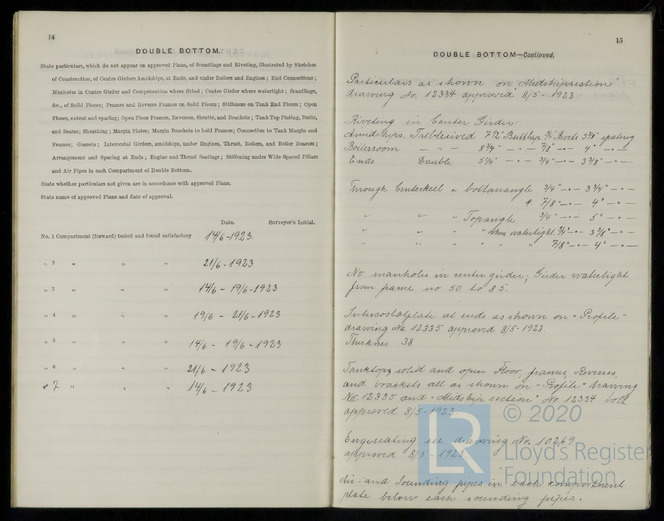 14
DOUBLE BOTTOM.
State particulars, which do not appear on approved Plans, of Scantlings and Riveting, illustrated by Sketches
of Construction, of Centre Girders Amidships, at Ends, and under Boilers and Engines; End Connections;
Manholes in Centre Girder and Compensation where fitted; Centre Girder where watertight; Scantlings,
&c., of Solid Floors; Frames and Reverse Frames on Solid Floors; Stiffeners on Tank End Floors; Open
Floors, extent and spacing; Open Floor Frames, Reverses, Struts, and Brackets; Tank Top Plating, Butts,
and Seams; Sheathing; Margin Plates; Margin Brackets to hold Frames; Connection to Tank Margin and
Frames; Gussets; Intercostal Girders, amidships, under Engines, Thrust, Boilers, and Boiler Bearers;
Arrangement and Spacing at Ends; Engine and Thrust Seatings; Stiffening under Wide Spaced Pillars
and Air Pipes in each Compartment of Double Bottom.
State whether particulars not given are in accordance with approved Plans.
State name of approved Plans and date of approval.
Date. Surveyor's Initial.
No. 1 Compartment (forward) tested and found satisfactory 14/6-1923.
„ 2 „ „ „ 21/6-1923
„ 3 „ „ „ 14/6 - 19/6-1923
„ 4 „ „ „ 19/6 - 21/6-1923
„ 5 „ „ „ 14/6 - 19/6-1923
„ 6 „ „ „ 21/6 - 1923
„ 7 „ „ „ 14/6 - 1923
15
DOUBLE BOTTOM—Continued.
Particulars as shown on "Midshipsection"
drawing No. 12334 approved 8/5-1923
Riveting in Center Girder
Amidships. 7 1/2" 3/4" Rivets spacing
Boilerroom - - 8 3/4" - - 7/8" - - 4" - -
Ends Double 5 1/4" - - 3/4" - - 3 7/8" - -
Through Centerkeel & bottomangle 3/4" - - 3 3/4" - -
7/8" - - 4" - -
„ „ „ Topangle 3/4" - - 5" - -
„ „ „ „ when watertight 3/4" - - 3 7/8" - -
„ „ „ „ 7/8" - - 4" - -
No manholes in center girder; Girder watertight
from frame no 50 to 85.
Intercostalplate at ends as shown on "Profile"
drawing No. 12335 approved 8/5-1923.
Thicknes 38
Tanktop, solid and open Floor, frames, Reverse,
and brackets all as shown on "Profile" drawing
No. 12335 and "Midship section" No. 12334 both
approved 8/5-1923
Engineseating see drawing No. 10269
approved 8/5-1923
Air- and Sounding pipes in each compartment
plate below each sounding pipes.
LR
© 2020
Lloyd's Register
Foundation